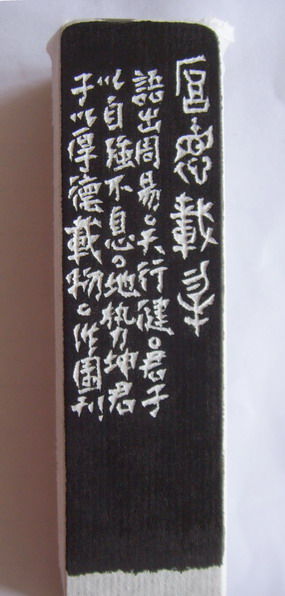 厚悳載物
語出周易。天行健。君子
以自強不息。地埶力坤君
子以厚德載物。作圃刊